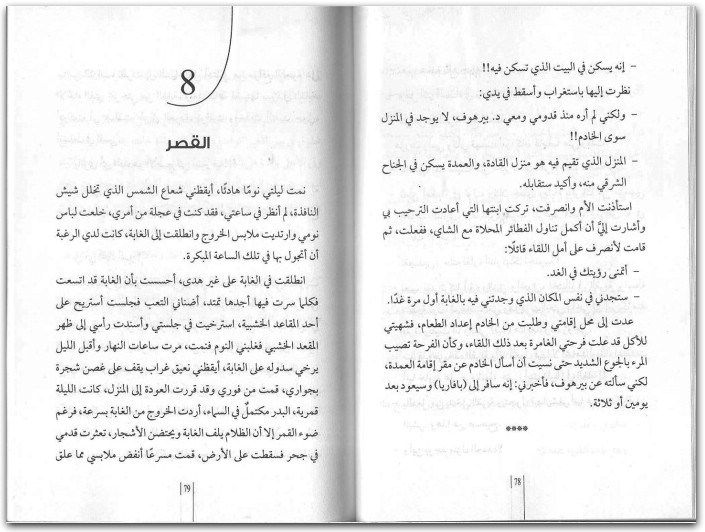 – إنه يسكن في البيت الذي تسكن فيه!!
نظرت إليها باستغراب وأسقط في يدي:
– ولكني لم أره منذ قدومي ومعي د. بيرهوف، لا يوجد في المنزل
سوى الخادم!!
– المنزل الذي تقيم فيه هو منزل القادة، والعمدة يسكن في الجناح
الشرقي منه، وأكيد ستقابله.
استأذنت الأم وانصرفت، تركت ابنتها التي أعادت الترحيب بي
وأشارت إليَّ أن أكمل تناول الفطائر المحلاة مع الشاي، ففعلت، ثم
قامت لأنصرف على أمل اللقاء قائلًا:
– أتمنى رؤيتك في الغد.
– ستجدني في نفس المكان الذي وجدتني فيه بالغابة أول مرة غدًا.
عدت إلى محل إقامتي وطلبت من الخادم إعداد الطعام، فشهيتي
للأكل قد علت فرحتي الغامرة بعد ذلك اللقاء، وكأن الفرحة تصيب
المرء بالجوع الشديد حتى نسيت أن أسأل الخادم عن مقر إقامة العمدة،
لكني سألته عن بيرهوف، فأخبرني: إنه سافر إلى (بافاريا) وسيعود بعد
يومين أو ثلاثة.
****
78
8
القصر
نمت ليلتي نومًا هادئًا، أيقظني شعاع الشمس الذي تخلل شيش
النافذة، لم أنظر في ساعتي، فقد كنت في عجلة من أمري، خلعت لباس
نومي وارتديت ملابس الخروج وانطلقت إلى الغابة، كانت لدي الرغبة
أن أتجول بها في تلك الساعة المبكرة.
انطلقت في الغابة على غير هدى، أحسست بأن الغابة قد اتسعت
فكلما سرت فيها أجدها تمتد، أضناني التعب فجلست أستريح على
أحد المقاعد الخشبية، استرخيت في جلستي وأسندت رأسي إلى ظهر
المقعد الخشبي فغلبني النوم فنمت، مرت ساعات النهار وأقبل الليل
يرخي سدوله على الغابة، أيقظني نعيق غراب يقف على غصن شجرة
بجواري، قمت من فوري وقد قررت العودة إلى المنزل، كانت الليلة
قمرية، البدر مكتملٌ في السماء، أردت الخروج من الغابة بسرعة، فرغم
ضوء القمر إلا أن الظلام يلف الغابة ويحتضن الأشجار، تعثرت قدمي
في جحر فسقطت على الأرض، قمت مسرعًا أنفض ملابسي مما علق
79